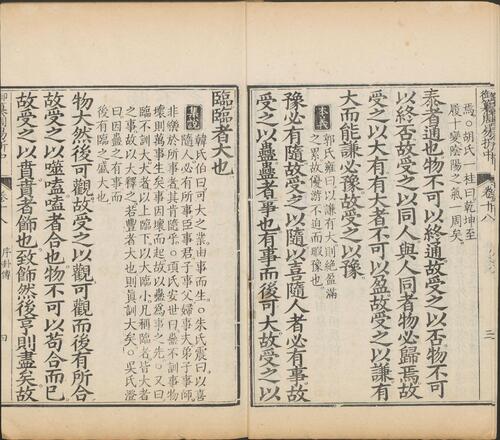 焉○胡氏一桂曰乾坤至
履十變陰陽之氣一周矣
泰者通也物不可以終通故受之以否物不可
以終否故受之以同人與人同者物必歸焉故
受之以大有有大者不可以盈故受之以謙有
大而能謙必豫故受之以豫
郭氏雍曰以謙有大則絶盈滿
之累故優游不迫而暇豫也
豫必有隨故受之以隨以喜隨人者必有事故
受之以蠱蠱者事也有事而後可大故受之以
臨臨者大也
韓氏伯曰可大之業由事而生○朱氏震曰以喜
隨人必有所事臣事君子事父婦事夫弟子事師
非樂於所事者其肯隨乎○項氏安世曰蠱不訓事物
壞則萬事生矣事因壞而起故以蠱爲事之先○又曰
臨不訓大大者以上臨下以大臨小凡稱臨者皆大者
之事故以大釋之若豐者大也則眞訓大矣○吳氏澄
曰因蠱之有事而
後有臨之盛大也
物大然後可觀故受之以觀可觀而後有所合
故受之以噬嗑嗑者合也物不可以苟合而已
故受之以賁賁者飾也致飾然後亨則盡矣故
序卦傳
四